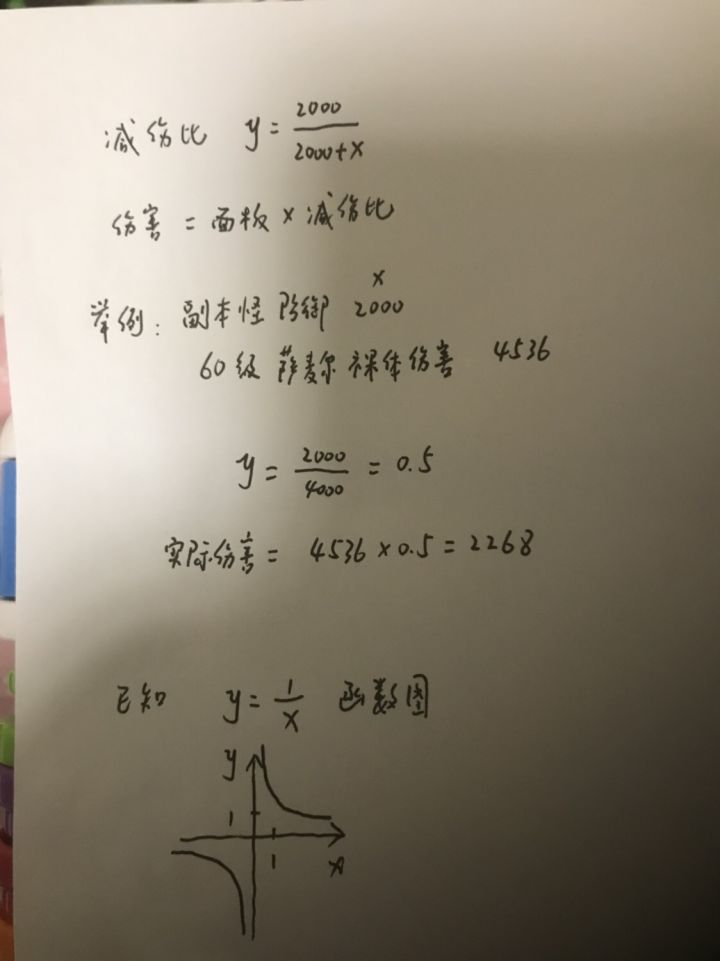 减伤比 y = 2000/(2000+x)
伤害 = 面板 × 减伤比
举例: 副本怪 防御 x 2000
60级 萨麦尔 裸体伤害 4536
y = 2000/4000 = 0.5
实际伤害 = 4536 × 0.5 = 2268
已知 y = 1/x 函数图
y
1
1
x